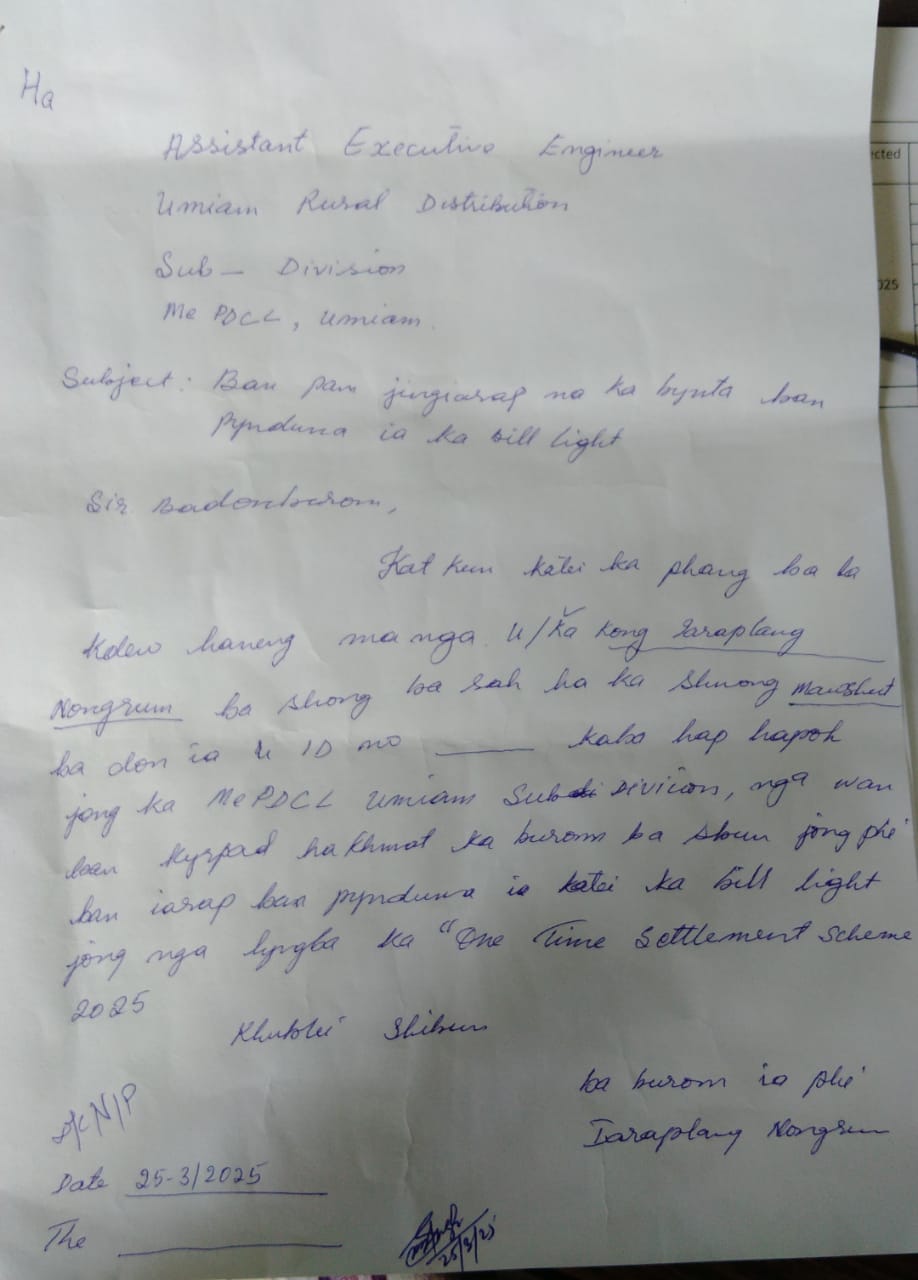 Ha
Assistant Executive Engineer
Umiam Rural Distribution
Sub- Division
MePDCL, Umiam.
Subject: Ban pan jingiarap na ka bynta ban
pynduna ia ka bill light
Sir Badonburom,
Kat kum katei ka phang ba la
kdew haneng ma nga U/Ka Kong Iaraplang
Nongrum ba shong ba sah ha ka Shnong
ba don ia u ID no ______ kaba hap hapoh
jong ka MePDCL Umiam Sub Division, nga wan
ban kyrpad ha khmat ka burom ba khun jong phi
ban iarap ban pynduna ia katei ka bill light
jong nga lyngba ka "One Time Settlement Scheme
2025
Khublei Shibun
ba burom ia phi
Iaraplang Nongrum
Date 25-3/2025
The ______
25/3/25
ected
025